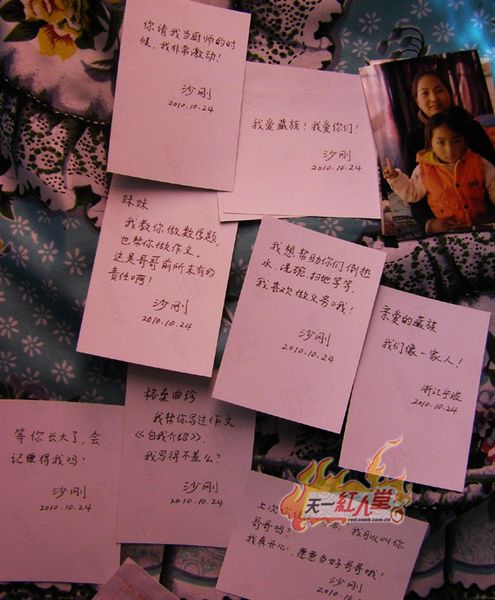 你请我当厨师的时
候，我非常激动！
沙刚
2010.10.24
我爱藏族！我爱你们！
沙刚
2010.10.24
妹妹
我教你做数学题，
也帮你做作文。
这是哥哥前所未有的
责任啊！
沙刚
2010.10.24
我想帮助你们倒热
水、洗碗、扫地等等，
我喜欢做义务哦！
沙刚
2010.10.24
亲爱的藏族
我们像一家人！
浙江宁波
2010.10.24
格桑曲珍
我帮你写过作文
《自我介绍》，
我写得不差么？
沙刚
2010.10.24
等你长大了，会
记得我吗？
沙刚
2010.10.24
上次
我可以叫你
哥哥吗？
我真开心，愿意当好哥哥哦！
沙刚
2010.10.24
天一紅人堂
red.cnnb.com.cn